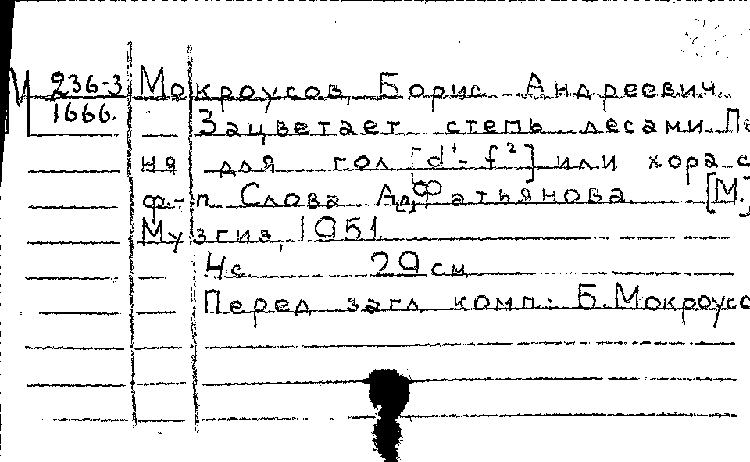 М 236-3 Мокроусов, Борис Андреевич.
1666. Зацветает степь лесами. Пе
ня для гол. [d¹-f²] или хора с
ф-п. Слова А. Фатьянова. [М.]
Музгиз, 1951.
4с. 29 см.
Перед загл. комп.: Б. Мокроусо